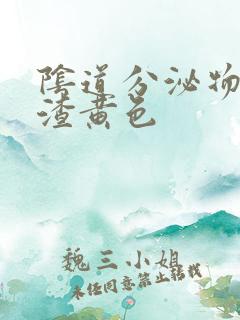 陰道分泌物
渣黄色
魏三小姐
未经同意禁止转载